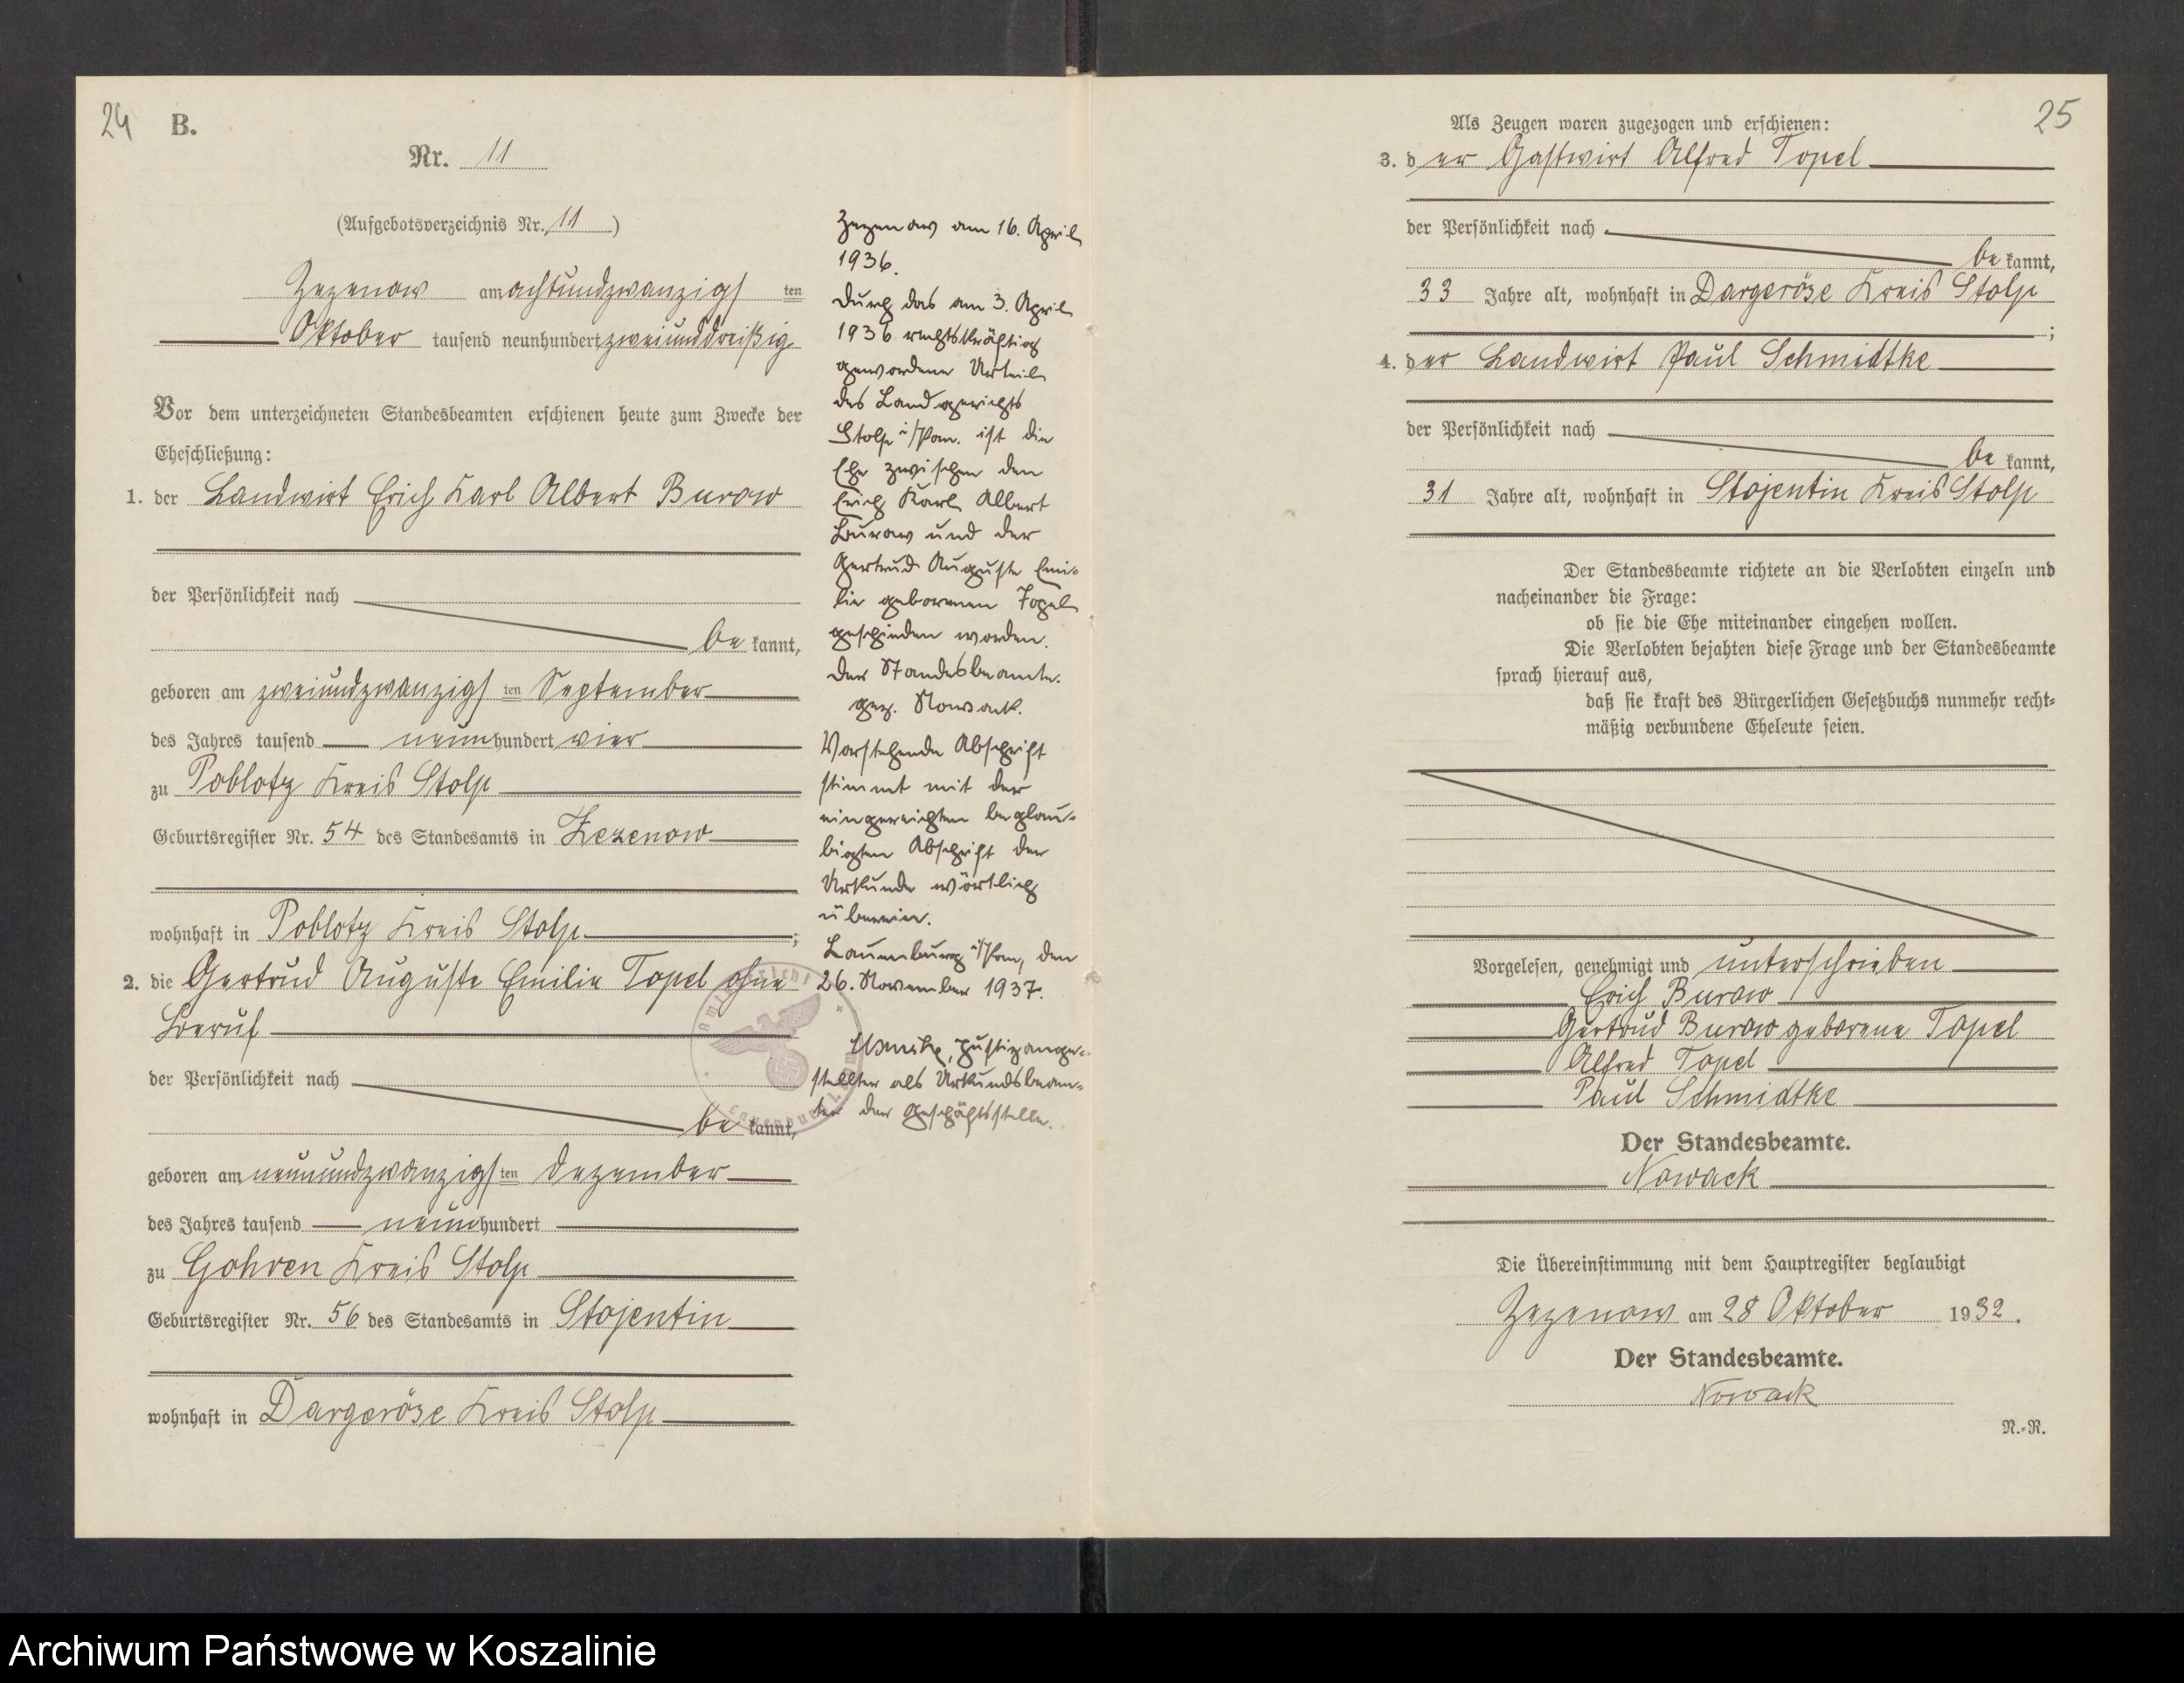 24 B.
Nr. 11
(Aufgebotsverzeichnis Nr. 11)
Zezenow am achtundzwanzigsten
Oktober tausend neunhundert zweiunddreißig
Vor dem unterzeichneten Standesbeamten erschienen heute zum Zwecke der
Eheschließung:
1. der Landwirt Erich Karl Albert Burow
der Persönlichkeit nach
be kannt,
geboren am zweiundzwanzigsten September
des Jahres tausend neunhundert vier
zu Poblotz Kreis Stolp
Geburtsregister Nr. 54 des Standesamts in Zezenow
wohnhaft in Poblotz Kreis Stolp ;
2. die Gertrud Auguste Emilie Topel ohne
Beruf
der Persönlichkeit nach
be kannt,
geboren am neunundzwanzigsten Dezember
des Jahres tausend neunhundert
zu Gohren Kreis Stolp
Geburtsregister Nr. 56 des Standesamts in Stojentin
wohnhaft in Dargeröse Kreis Stolp
Zezenow am 16. April
1936.
Durch das am 3. April
1936 rechtskräftig
gewordene Urteil
des Landgerichts
Stolp i/Pom. ist die
Ehe zwischen den
Erich Karl Albert
Burow und der
Gertrud Auguste Emi-
lie geborenen Topel
geschieden worden.
Der Standesbeamte.
gez. Nowack.
Vorstehende Abschrift
stimmt mit der
eingereichten beglau-
bigten Abschrift der
Urkunde wörtlich
überein.
Lauenburg i/Pom, den
26. November 1937.
Justizange-
stellter als Urkundsbeam-
ter der Geschäftsstelle.
Amtsgericht
Lauenburg
25
Als Zeugen waren zugezogen und erschienen:
3. der Gastwirt Alfred Topel
der Persönlichkeit nach
be kannt,
33 Jahre alt, wohnhaft in Dargeröse Kreis Stolp
;
4. der Landwirt Paul Schmidtke
der Persönlichkeit nach
be kannt,
31 Jahre alt, wohnhaft in Stojentin Kreis Stolp
Der Standesbeamte richtete an die Verlobten einzeln und
nacheinander die Frage:
ob sie die Ehe miteinander eingehen wollen.
Die Verlobten bejahten diese Frage und der Standesbeamte
sprach hierauf aus,
daß sie kraft des Bürgerlichen Gesetzbuchs nunmehr recht-
mäßig verbundene Eheleute seien.
Vorgelesen, genehmigt und unterschrieben
Erich Burow
Gertrud Burow geborene Topel
Alfred Topel
Paul Schmidtke
Der Standesbeamte.
Nowack
Die Übereinstimmung mit dem Hauptregister beglaubigt
Zezenow am 28 Oktober 1932.
Der Standesbeamte.
Nowack
N.-R.
Archiwum Państwowe w Koszalinie